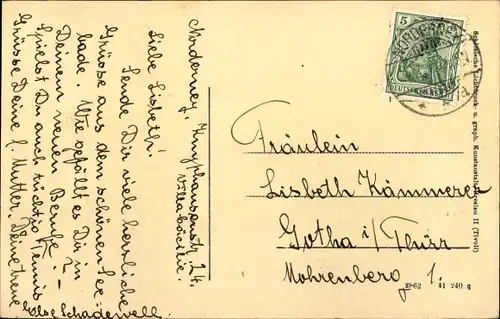 Norderney, Knyphausenstr. 24.
Villa Cäcilie.
Liebe Lisbeth!
Sende Dir viele herzliche
Grüsse aus dem schönen See=
bade. Wie gefällt es Dir in
Deinem neuen Berufe? -
Spielst Du auch tüchtig Tennis
Grüsse Deine l. Mutter. Deine treue
Else Schadewell.
5
NORDERNEY
DEUTSCHES REICH
Fräulein
Lisbeth Kämmerer
Gotha i/Thür
Mohrenberg 1.
u. graph. Kunstanstalt
II (Tirol)
41 240 g